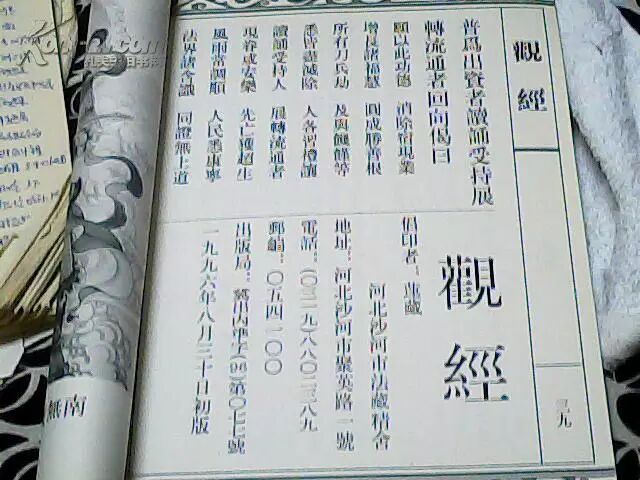 觀經
三九
普爲出資者讀誦受持展
轉流通者回向偈曰
願以此功德 消除宿現業
增長諸福慧 圓成勝善根
所有刀兵劫 及與饑饉等
悉皆盡滅除 人各習禮讓
讀誦受持人 展轉流通者
現眷咸安樂 先亡獲超生
風雨常調順 人民悉康寧
法界諸含識 同證無上道
觀經
倡印者：
河北沙河市法藏精舍
地址：河北沙河市聚英路一號
電話：(〇三一九)八八〇二三八九
郵編：〇五四一〇〇
出版局：冀出內準字(96)第〇七七號
一九九六年八月三十日初版
南無